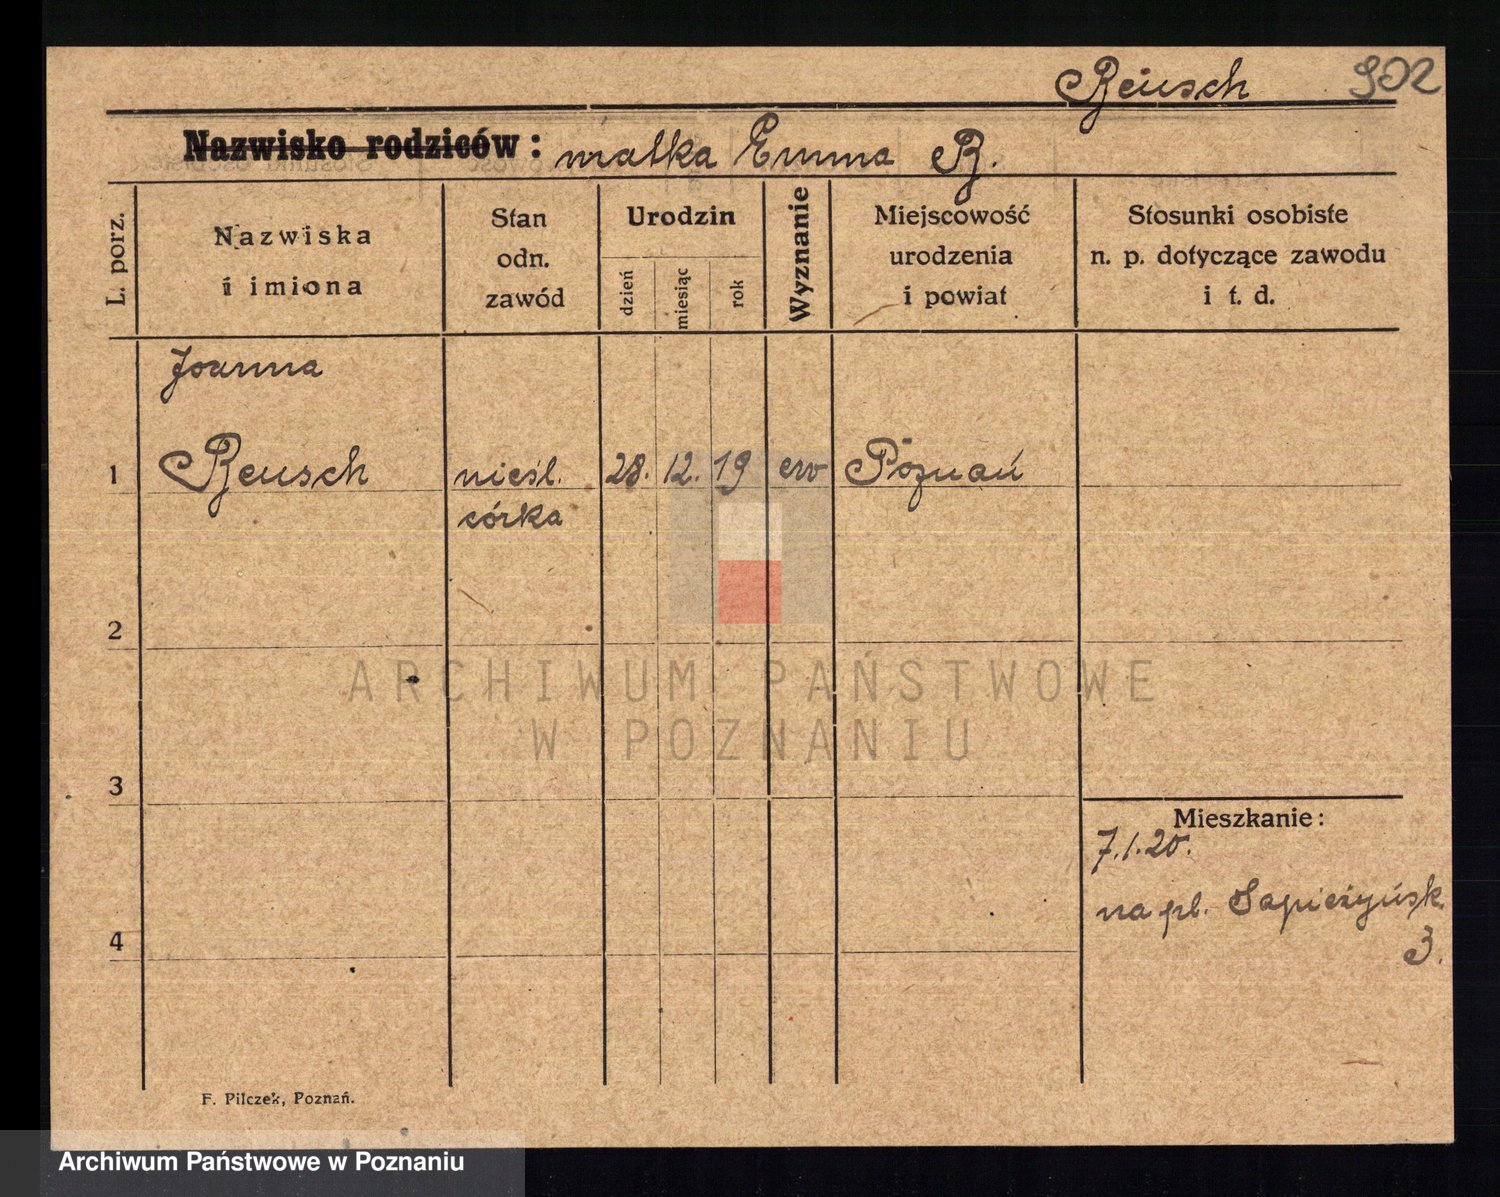 Reusch 902
Nazwisko rodziców : matka Emma R.
L. porz.
Nazwiska
i imiona
Stan
odn.
zawód
Urodzin
dzień
miesiąc
rok
Wyznanie
Miejscowość
urodzenia
i powiat
Stosunki osobiste
n. p. dotyczące zawodu
i t. d.
Joanna
1 Reusch nieśl. 28. 12. 19 ew Poznań
córka
2
ARCHIWUM PAŃSTWOWE
W POZNANIU
3
Mieszkanie:
7.1.20.
na pl. Sapieżyńsk.
4
3.
F. Pilczek, Poznań.
Archiwum Państwowe w Poznaniu